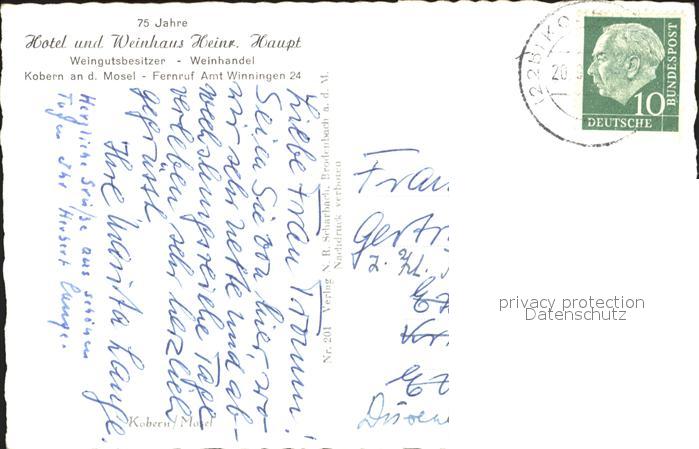 75 Jahre
Hotel und Weinhaus Heinr. Haupt
Weingutsbesitzer - Weinhandel
Kobern an d. Mosel - Fernruf Amt Winningen 24
Liebe Frau
Seien Sie von hier, wo
wir sehr nette und ab-
wechslungsreiche Tage
verleben sehr herzlich
gegrüsst.
Ihre Marita Lange.
Herzliche Grüße aus schönen
Tagen Ihr Herbert Lange.
Kobern/Mosel
Nr. 201 Verlag N. B. Scharbach, Brodenbach a. d. M.
Nachdruck verboten
Frau
Gertr
z. Zt.
20
10
DEUTSCHE
BUNDESPOST
privacy protection
Datenschutz